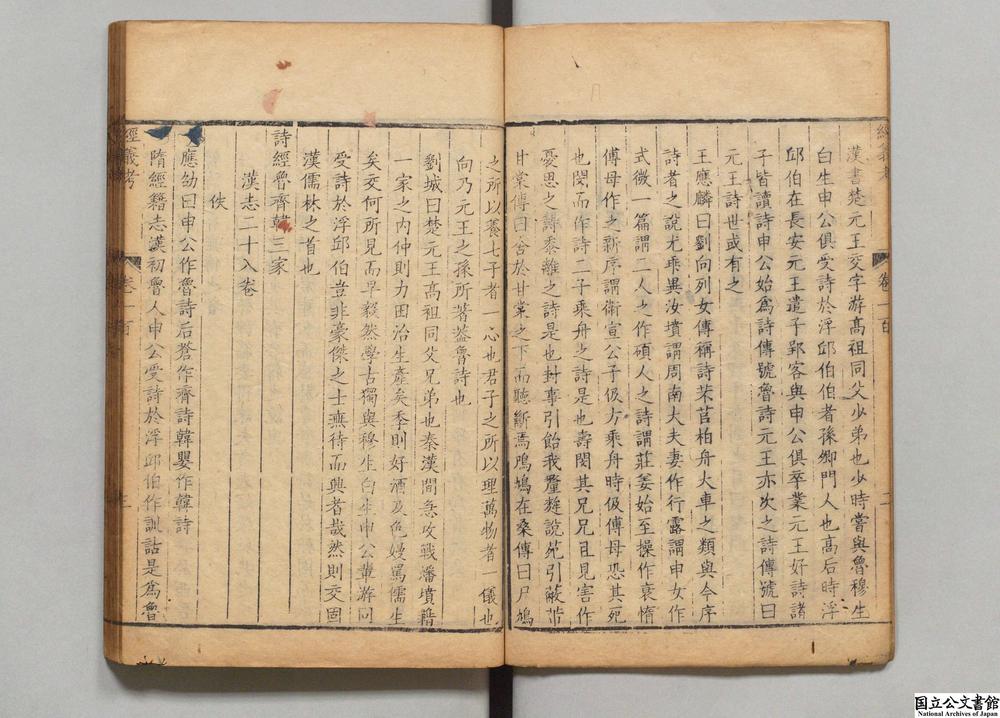 漢書楚元王交字游高祖同父少弟也少時嘗與魯穆生
白生申公俱受詩於浮邱伯伯者孫卿門人也高后時浮
邱伯在長安元王遣子郢客與申公俱卒業元王好詩諸
子皆讀詩申公始爲詩傳號魯詩元王亦次之詩傳號曰
元王詩世或有之
王應麟曰劉向列女傳稱詩芣苢柏舟大車之類與今序
詩者之說尤乖異汝墳謂周南大夫妻作行露謂申女作
式微一篇謂二人之作碩人之詩謂莊姜始至操作衰惰
傅母作之新序謂衛宣公子伋方乘舟時伋傅母恐其死
也閔而作詩二子乘舟之詩是也壽閔其兄且見害作
憂思之詩黍離之詩是也封事引飴我釐麰說苑引蔽芾
甘棠傳曰舍於甘棠之下而聽斷焉鳲鳩在桑傳曰尸鳩
之所以養七子者一心也君子之所以理萬物者一儀也
向乃元王之孫所著蓋魯詩也
劉城曰楚元王高祖同父兄弟也秦漢間急攻戰潘墳籍
一家之內仲則力田治生產矣季則好酒及色嫚罵儒生
矣交何所見而早毅然學古獨與穆生白生申公輩游同
受詩於浮邱伯豈非豪傑之士無待而興者哉然則交固
漢儒林之首也
詩經魯齊韓三家
漢志二十八卷
佚
應劭曰申公作魯詩后蒼作齊詩韓嬰作韓詩
隋經籍志漢初魯人申公受詩於浮邱伯作訓詁是爲魯
經義考
卷一百
二
卷一百
三
国立公文書館
National Archives of Japan